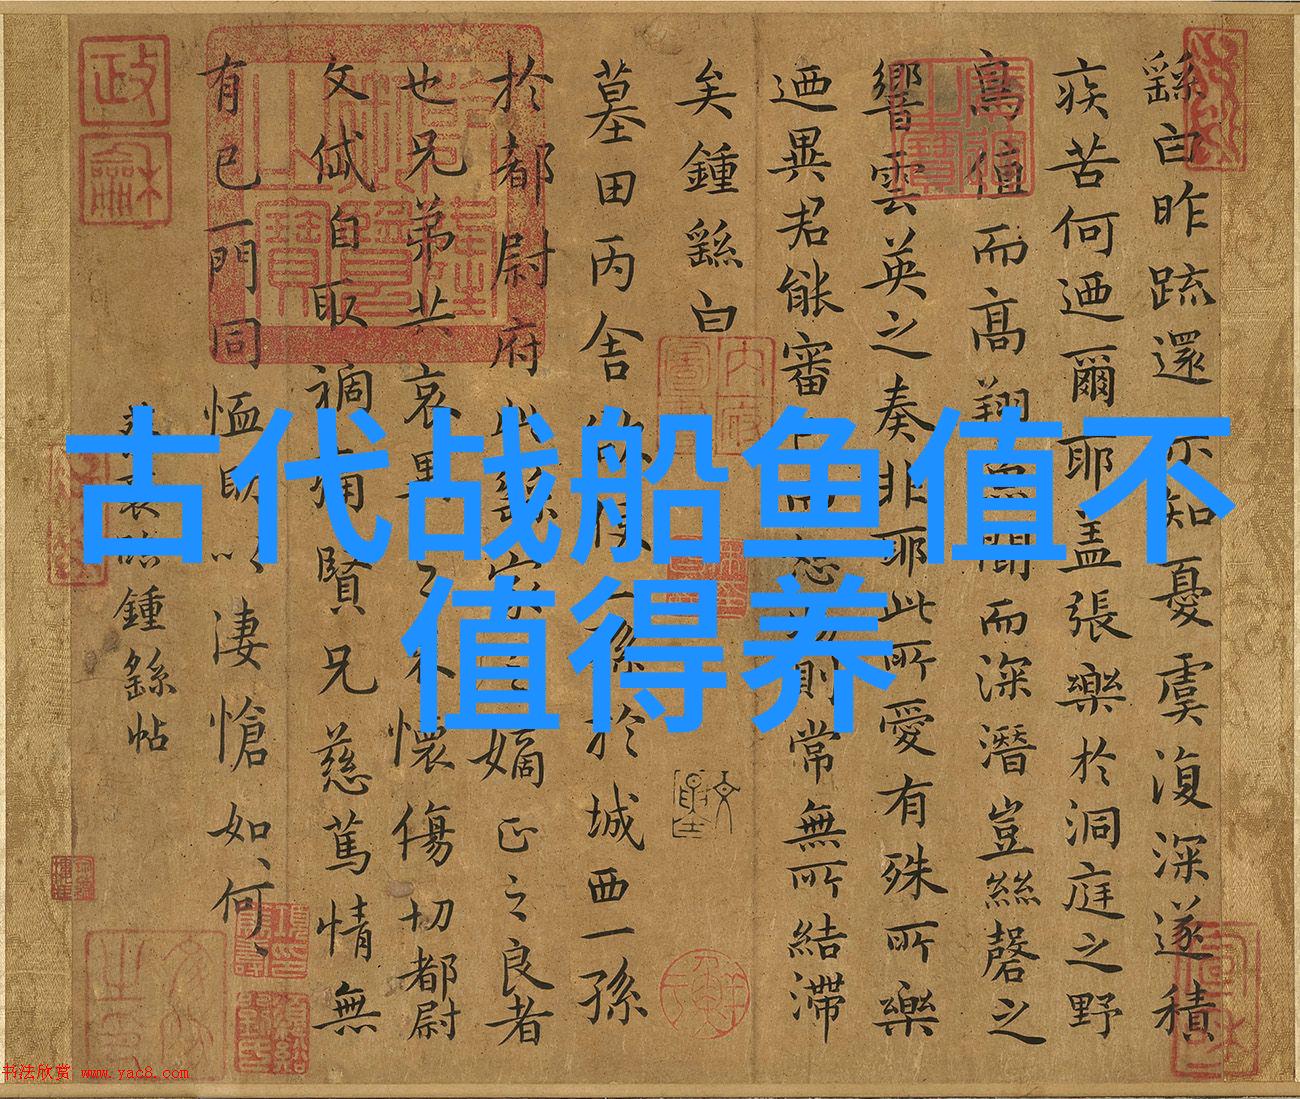 古代战船鱼值不
值得养
繇白昨疏還示知憂虞復深遂積
疾苦何迺爾耶蓋張樂於洞庭之野
鳥值而高翔魚聞而深潛豈絲磬之
響雲英之奏非耶此所愛有殊所樂
迺異君能審而恕物則常無所結滯
矣鍾繇白
墓田丙舍欲使一孫於城西一孫
於都尉府此繇家之嫡正之良者
也兄弟共哀異之懷傷切都尉
文岱自取禍痛賢兄慈篤情無
有已一門同恤助以淒愴如、何、
臨鍾繇帖
书法欣赏 www.yac8.com